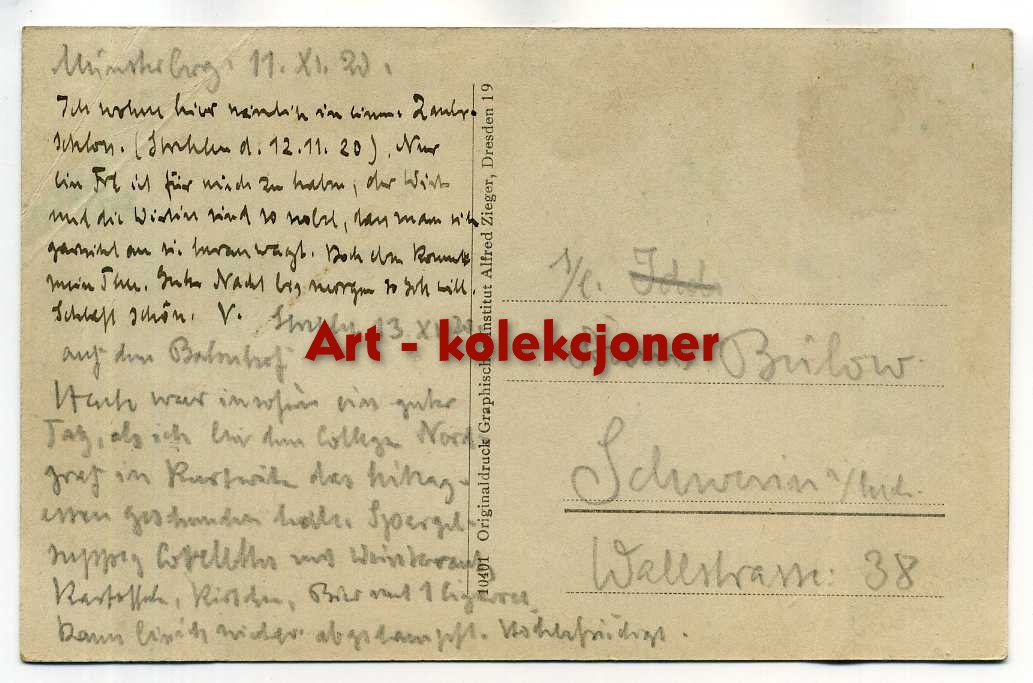 Münsterberg. 11. XI. 20.
Ich wohne hier nämlich in einem Zauber-
schloss. (Strehlen d. 12.11.20). Nur
ein Frl ist für mich zu haben, der Wirt
und die Wirtin sind so nobel, dass man sich
garnicht an sie heranwagt. Doch dem kommt
mein Thee. Gute Nacht bis morgen so Gott will.
Schlaft schön. V.
Strehlen 13. XI. 20.
auf dem Bahnhof
Heute war insofern ein guter
Tag, als ich bei dem Collegen Nord-
graf in das Mittag-
essen geschunden habe. Spargel-
suppe, Cotelettes mit Weisskraut,
Kartoffeln, Kirschen, Bier und 1 Cigarre.
Dann bin ich wieder abgedampft.
10401 Originaldruck Graphisch Institut Alfred Zieger, Dresden 19
Art - kolekcjoner
Bülow.
Schwerin i/Meck.
Wallstrasse. 38